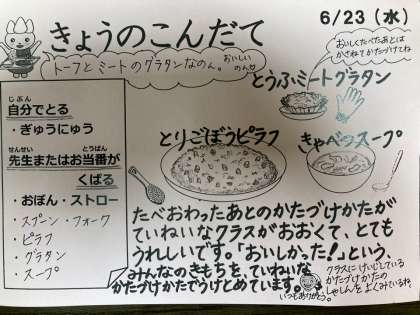 6/23(水)
きょうのこんだて
トーフとミートのグラタンなのん。おいしいのん♡
おいしくたべたあとは
かさねてかたづけてね
とうふミートグラタン
とりごぼうピラフ
きゃべつスープ
じぶん
自分でとる
・ぎゅうにゅう
せんせい とうばん
先生またはお当番が
くばる
・おぼん・ストロー
・スプーン・フォーク
・ピラフ
・グラタン
・スープ
たべおわったあとのかたづけかたが
ていねいなクラスがおおくて、とても
うれしいです。「おいしかった!」という、
みんなのきもちを、ていねいな
かたづけかたでうけとめています。
いつもありがとう。
クラスにけいじしている
かたづけかたの
しゃしんをよくみているね